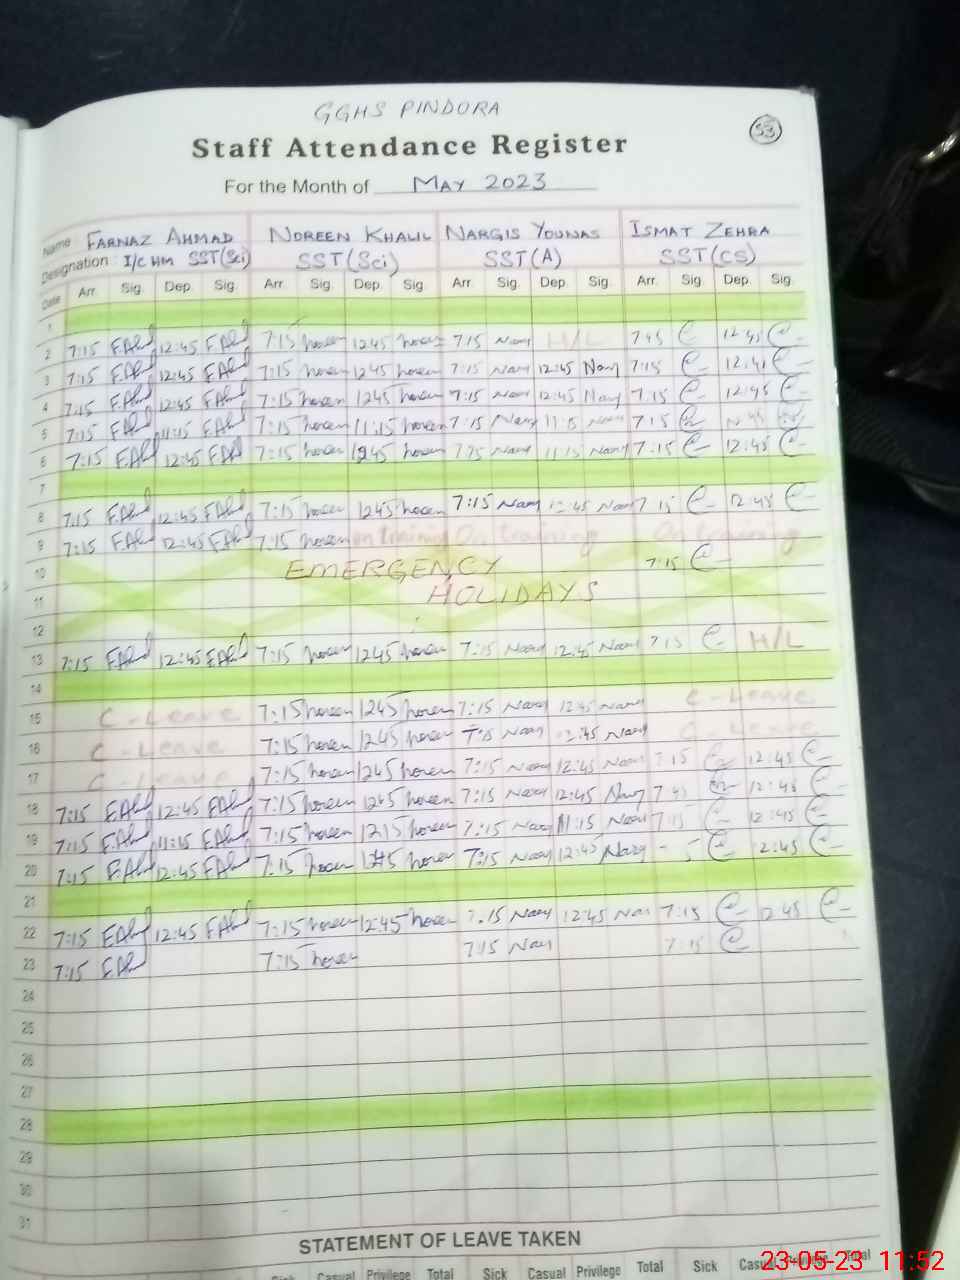 GGHS PINDORA
53
Staff Attendance Register
For the Month of MAY 2023
Name FARNAZ AHMAD NOREEN KHALIL NARGIS YOUNAS ISMAT ZEHRA
Designation : I/C HM SST(Sci) SST(Sci) SST(A) SST(CS)
Date Arr. Sig. Dep. Sig. Arr. Sig. Dep. Sig. Arr. Sig. Dep. Sig. Arr. Sig. Dep. Sig.
1
2 7:15 F.Ahd 12:45 F.Ahd 7:15 noreen 1245 noreen 7:15 Nary H/L 7:45
3 7:15 F.Ahd 12:45 F.Ahd 7:15 noreen 1245 noreen 7:15 Nary 12:45 Nary 7:15
4 7:15 F.Ahd 12:45 F.Ahd 7:15 noreen 1245 noreen 7:15 Nary 12:45 Nary 7:15 12:45
5 7:15 F.Ahd 11:15 F.Ahd 7:15 noreen 11:15 noreen 7:15 Nary 11:15 Nary 7:15
6 7:15 F.Ahd 12:45 F.Ahd 7:15 noreen 1245 noreen 7:15 Nary 11:15 Nary 7:15 12:45
7
8 7:15 F.Ahd 12:45 F.Ahd 7:15 noreen 1245 noreen 7:15 Nary 12:45 Nary 7:15 12:45
9 7:15 F.Ahd 12:45 F.Ahd 7:15 noreen on training On training On training
10 EMERGENCY 7:15
11 HOLIDAYS
12
13 7:15 F.Ahd 12:45 F.Ahd 7:15 noreen 1245 noreen 7:15 Nary 12:45 Nary 7:15 H/L
14
15 C-Leave 7:15 noreen 1245 noreen 7:15 Nary 12:45 Nary C-Leave
16 C-Leave 7:15 noreen 1245 noreen 7:15 Nary 12:45 Nary C-Leave
17 C-Leave 7:15 noreen 1245 noreen 7:15 Nary 12:45 Nary 7:15 12:45
18 7:15 F.Ahd 12:45 F.Ahd 7:15 noreen 1245 noreen 7:15 Nary 12:45 Nary 12:45
19 7:15 F.Ahd 11:15 F.Ahd 7:15 noreen 1215 noreen 7:15 Nary 11:15 Nary 7:15 12:45
20 7:15 F.Ahd 12:45 F.Ahd 7:15 noreen 1245 noreen 7:15 Nary 12:45 Nary 12:45
21
22 7:15 F.Ahd 12:45 F.Ahd 7:15 noreen 12:45 noreen 7:15 Nary 12:45 Nary 7:15 12:45
23 7:15 F.Ahd 7:15 noreen 7:15 Nary 7:15
24
25
26
27
28
29
30
31
STATEMENT OF LEAVE TAKEN
Sick Casual Privilege Total Sick Casual Privilege Total Sick Casual Privilege Total
23-05-23 11:52